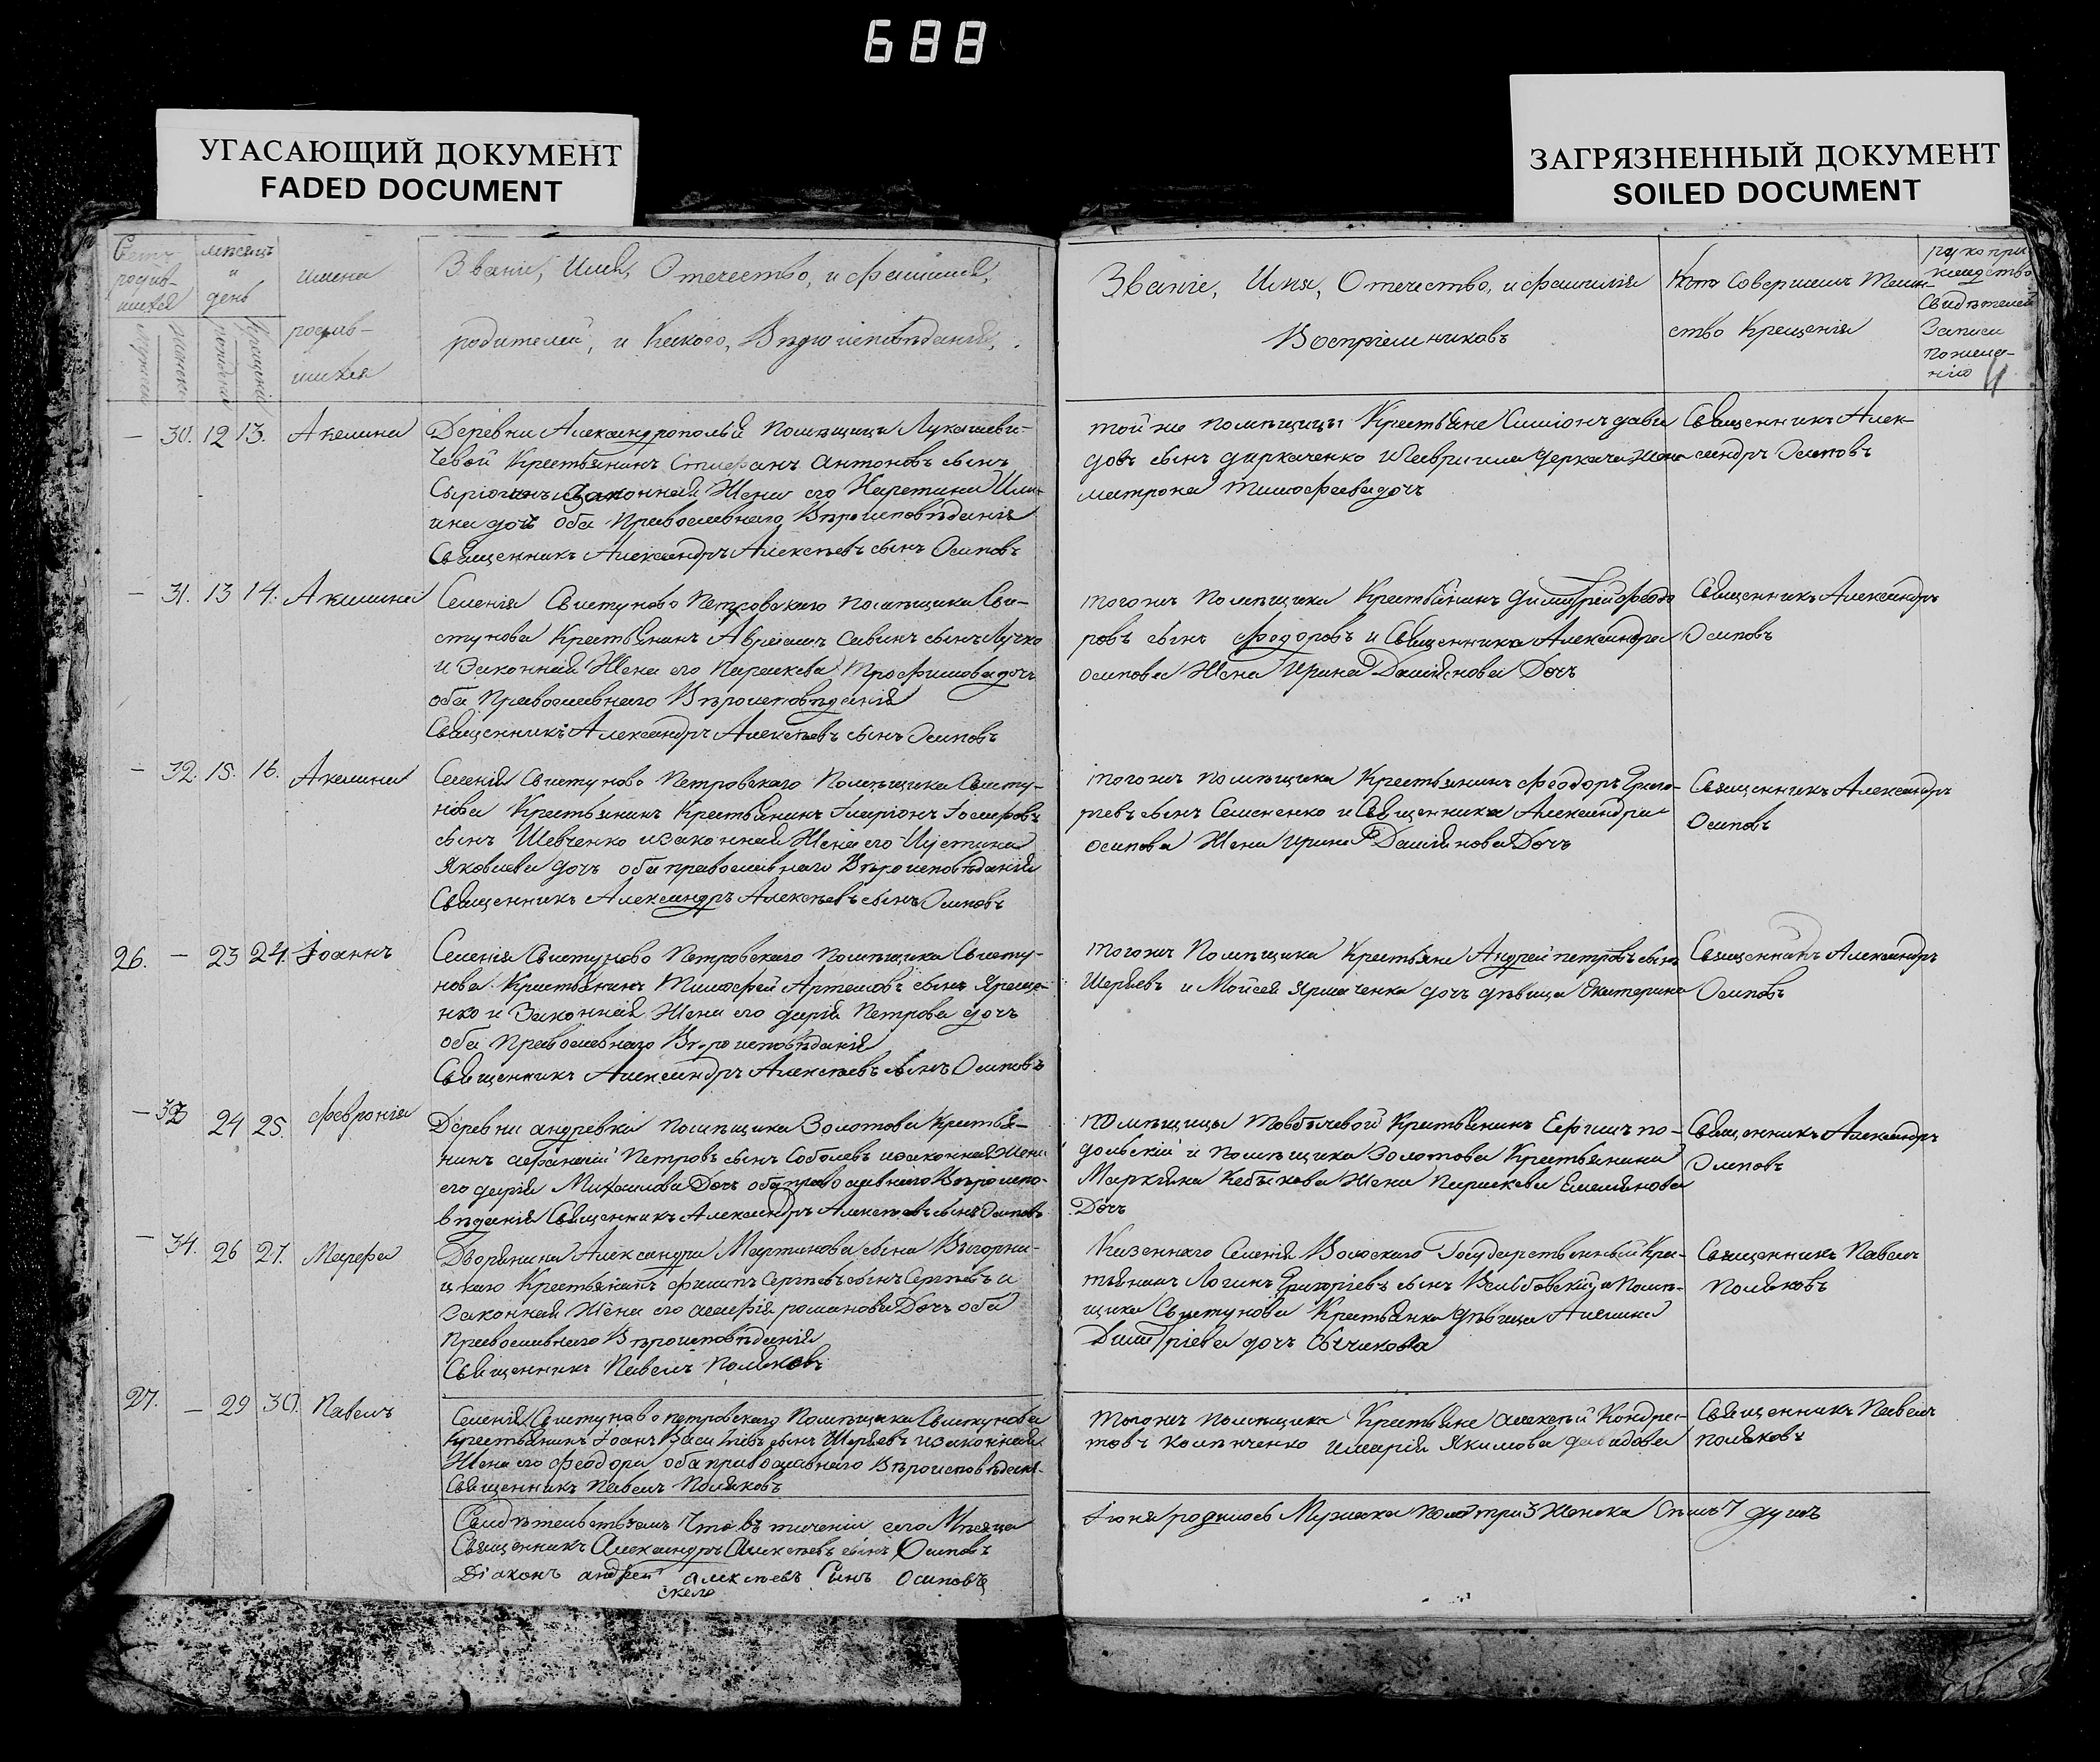 688
УГАСАЮЩИЙ ДОКУМЕНТ
FADED DOCUMENT
ЗАГРЯЗНЕННЫЙ ДОКУМЕНТ
SOILED DOCUMENT
Счетъ родив-шихся
мѣсяцъ и день
имена родив-шихся
Званіе, Имя, Отечество, и фамилія,
родителей, и Какого, Вѣроисповѣданія,
Званіе, Имя, Отечество, и фамилія
Воспріемниковъ
Кто Совершилъ Таин-
ство Крещенія
рукопри
кладство
Свидѣтелей
Записи
по жела-
нію
— 30. 12 13. Акилина
Деревни Александрополья Помѣщицы Лукашеви-
чевой Крестьянинъ Стефанъ Антоновъ сынъ
законная Жена его
дочь оба Православнаго Вѣроисповѣданія
Священникъ Александръ Алексѣевъ сынъ Осиповъ
той же помѣщицы Крестьяне Симіонъ дави
довъ сынъ деркаченко Деркача Жена
матрона Тимофеева дочь
Священникъ Алек-
сандръ Осиповъ
— 31. 13 14. Акилина
Селенія Свистуново Петровскаго помѣщика Сви-
стунова Крестьянинъ Авраамъ Савинъ сынъ Лучко
и Законная Жена его Параскева Трофимова дочь
оба Православнаго Вѣроисповѣданія
Священникъ Александръ Алексѣевъ сынъ Осиповъ
тогожъ Помѣщика Крестьянинъ Димитрій Феодо
ровъ сынъ Федоровъ и Священника Александра
осипова Жена Ирина Даміянова Дочь
Священникъ Александръ
Осиповъ
— 32. 15. 16. Акилина
Селенія Свистуново Петровскаго Помѣщика Свисту-
нова Крестьянинъ Крестьянинъ Іларіонъ Іосифовъ
сынъ Шевченко изаконная Жена его Иустина
Яковлева дочь оба православнаго Вѣроисповѣданія
Священникъ Александръ Алексѣевъ сынъ Осиповъ
тогожъ помѣщика Крестьянинъ Феодоръ Григо-
рьевъ сынъ Семененко и Священника Александра
осипова Жена Ирина Даміянова Дочь
Священникъ Александръ
Осиповъ
26. — 23 24. Іоаннъ
Селенія Свистуново Петровскаго помѣщика Свисту-
нова Крестьянинъ Тимофей Артемовъ сынъ Яреме-
нко и Законная Жена его дарія Петрова дочь
оба Православнаго Вѣроисповѣданія
Священникъ Александръ Алексѣевъ сынъ Осиповъ
тогожъ Помѣщика Крестьяне Андрей петровъ сынъ
Шеряевъ и Мойсея Ярмаченка дочь дѣвица Екатерина
Священникъ Александръ
Осиповъ
— 33 24 25. Февронія
Деревни андревки помѣщика Золотова Крестья-
нинъ афанасій Петровъ сынъ Соболевъ изаконная Жена
его дарія Михайлова Дочь оба православнаго Вѣроиспо-
вѣданія Священникъ Александръ Алексѣевъ сынъ Осиповъ
помѣщицы Товбычевой Крестьянинъ Ефимъ по-
дольскій и помѣщика Золотова Крестьянина
Маркіяна Кебыкова Жена Параскева Емелянова
Дочь
Священникъ Александръ
Осиповъ
— 34. 26 27. Марфа
Дворянина Александра Мартинова сына Выгорни-
цкаго Крестьянинъ филипъ Сергѣевъ сынъ Сергѣевъ и
Законная Жена его агафія романова Дочь оба
Православнаго Вѣроисповѣданія
Священникъ Павелъ Поляковъ
Казеннаго Селенія Волоскаго Государственный Кре-
тьянинъ Логинъ Григоріевъ сынъ и Помѣ-
щика Свистунова Крестьянка дѣвица Акилина
Димитріева дочь Сычикова
Священникъ Павелъ
Поляковъ
27. — 29 30. Павелъ
Селенія Свистуново петровскаго Помѣщика Свистунова
Крестьянинъ Іоанъ Василіевъ сынъ Шеряевъ изаконная
Жена его Феодора оба православнаго Вѣроисповѣдані-
Священникъ Павелъ Поляковъ
тогожъ помѣщика Крестьяне алексѣй Кондра-
товъ имарія Якимова давидова
Священникъ Павелъ
поляковъ
Свидѣтельствуемъ Что въ теченіи сего Мѣсяца
Священникъ Александръ Алексѣевъ сынъ Осиповъ
Діаконъ андрей алексѣевъ Сынъ Осиповъ
Іюня родилось Мужеска три 3 Женска 7 душъ